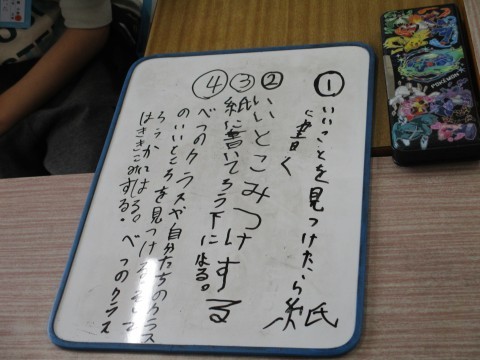 ①いいことを見つけたら紙
に書く
②いいとこみつけする
③紙に書いてろう下にはる。
④べつのクラスや自分たちのクラス
のいいところを見つける
ろうかにはる。べつのクラス